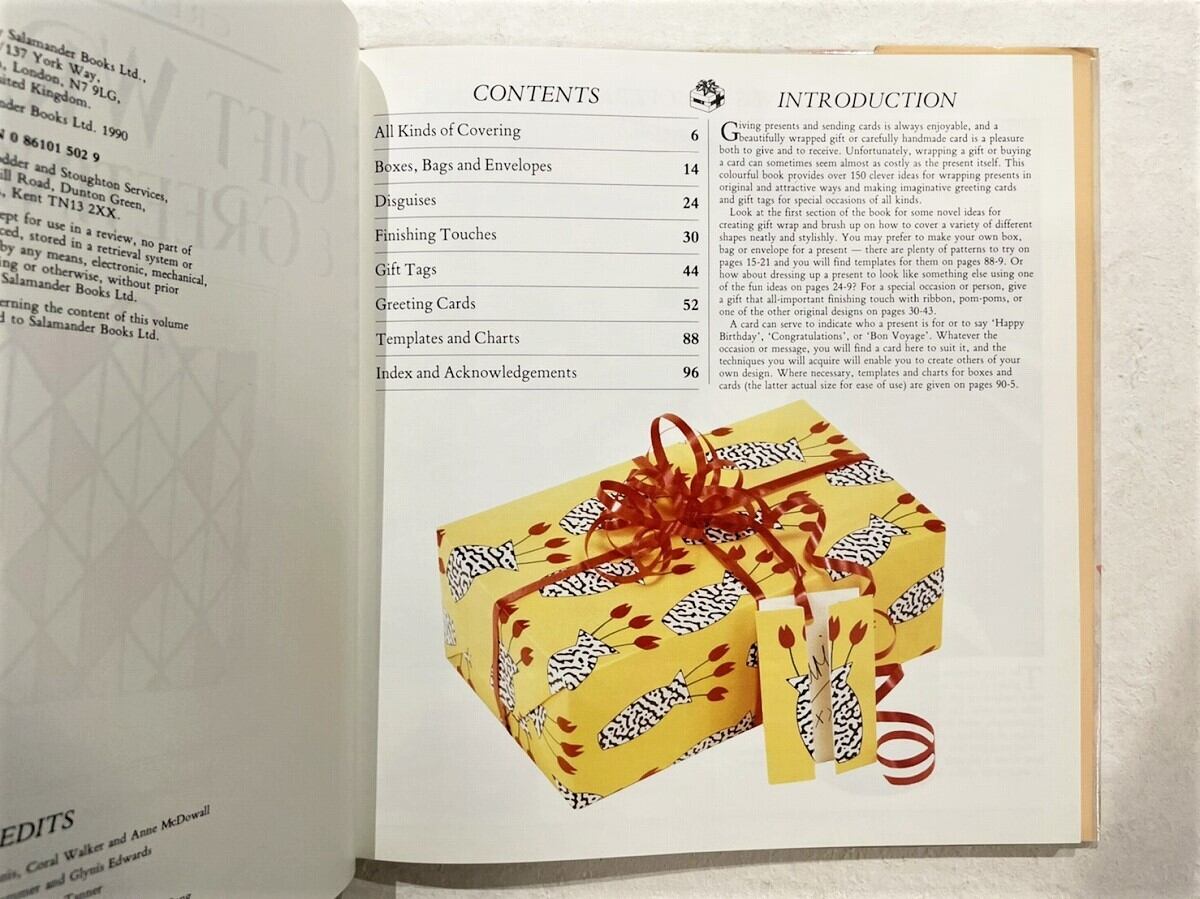 Salamander Books Ltd.,
137 York Way,
London, N7 9LG,
United Kingdom.
Books Ltd. 1990
0 86101 502 9
and Stoughton Services,
Road, Dunton Green,
Kent TN13 2XX.
for use in a review, no part of
stored in a retrieval system or
by any means, electronic, mechanical,
or otherwise, without prior
Salamander Books Ltd.
the content of this volume
to Salamander Books Ltd.
EDITS
Coral Walker and Anne McDowall
and Glynis Edwards
Tanner
CONTENTS
All Kinds of Covering 6
Boxes, Bags and Envelopes 14
Disguises 24
Finishing Touches 30
Gift Tags 44
Greeting Cards 52
Templates and Charts 88
Index and Acknowledgements 96
INTRODUCTION
Giving presents and sending cards is always enjoyable, and a
beautifully wrapped gift or carefully handmade card is a pleasure
both to give and to receive. Unfortunately, wrapping a gift or buying
a card can sometimes seem almost as costly as the present itself. This
colourful book provides over 150 clever ideas for wrapping presents in
original and attractive ways and making imaginative greeting cards
and gift tags for special occasions of all kinds.
Look at the first section of the book for some novel ideas for
creating gift wrap and brush up on how to cover a variety of different
shapes neatly and stylishly. You may prefer to make your own box,
bag or envelope for a present — there are plenty of patterns to try on
pages 15-21 and you will find templates for them on pages 88-9. Or
how about dressing up a present to look like something else using one
of the fun ideas on pages 24-9? For a special occasion or person, give
a gift that all-important finishing touch with ribbon, pom-poms, or
one of the other original designs on pages 30-43.
A card can serve to indicate who a present is for or to say ‘Happy
Birthday’, ‘Congratulations’, or ‘Bon Voyage’. Whatever the
occasion or message, you will find a card here to suit it, and the
techniques you will acquire will enable you to create others of your
own design. Where necessary, templates and charts for boxes and
cards (the latter actual size for ease of use) are given on pages 90-5.